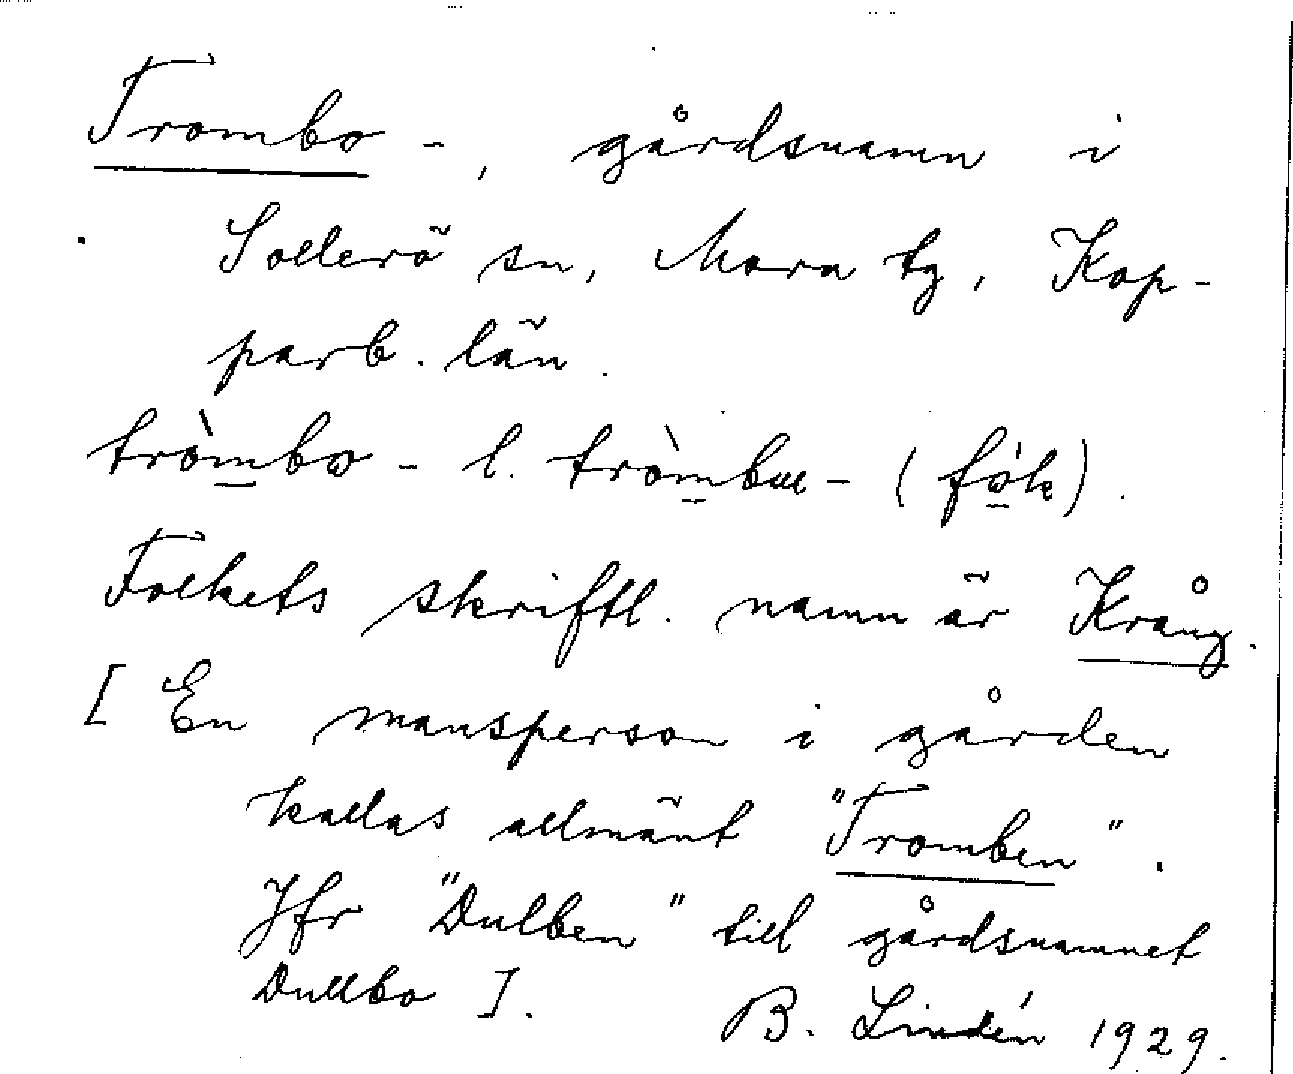 Trombo -, gårdsnamn i
Sollerö sn, Mora tg, Kop-
parb. län.
tròmbω - l. tròmbɯ - (fö́k).
Folkets skriftl. namn är Krång.
[ En mansperson i gården
kallas allmänt "Tromben".
Jfr "Dulben" till gårdsnamnet
Dullbo ].
B. Lindén 1929.